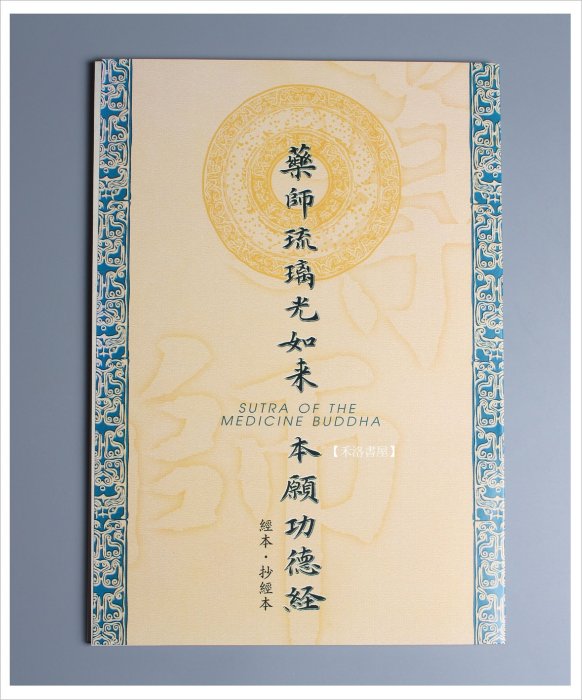 藥師琉璃光如来
SUTRA OF THE
MEDICINE BUDDHA
本願功德経
【禾洛書屋】
經本・抄經本
藥
師